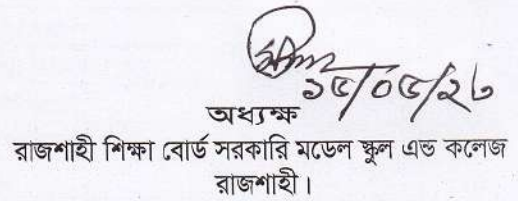 ১৫/০৫/২৬
অধ্যক্ষ
রাজশাহী শিক্ষা বোর্ড সরকারি মডেল স্কুল এন্ড কলেজ
রাজশাহী।